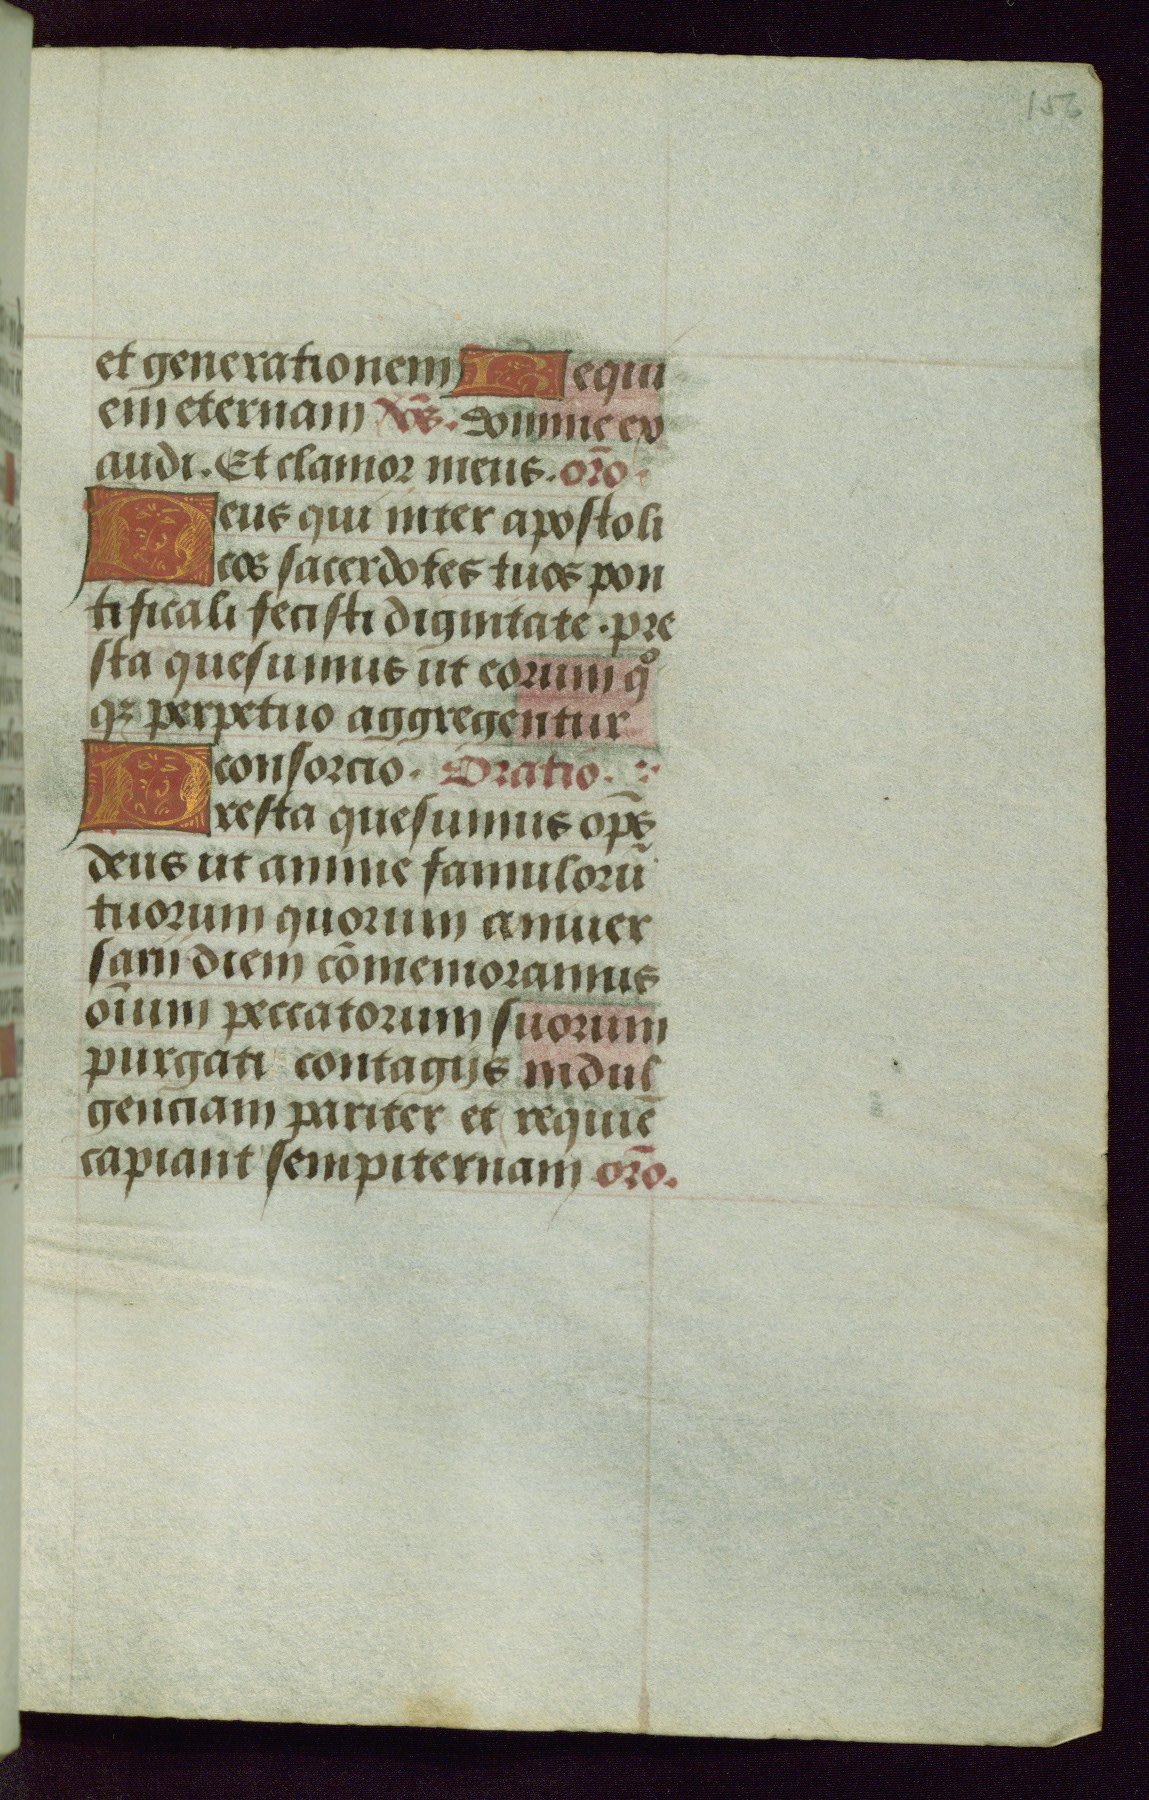 153
et generationem Requi
em eternam V̄s. Domine ex
audi. Et clamor meus. or̄o
Deus qui inter apostoli
cos sacerdotes tuos pon
tificali fecisti dignitate. pre
sta quesumus ut eorum qͦ
qꝫ perpetuo aggregentur
consorcio. Oratio.
Presta quesumus op̄s
deus ut anime famulorū
tuorum quorum anniuer
sarij diem cōmemoramus
oīum peccatorum suorum
purgati contagijs indul
genciam pariter et requiē
capiant sempiternam or̄o.